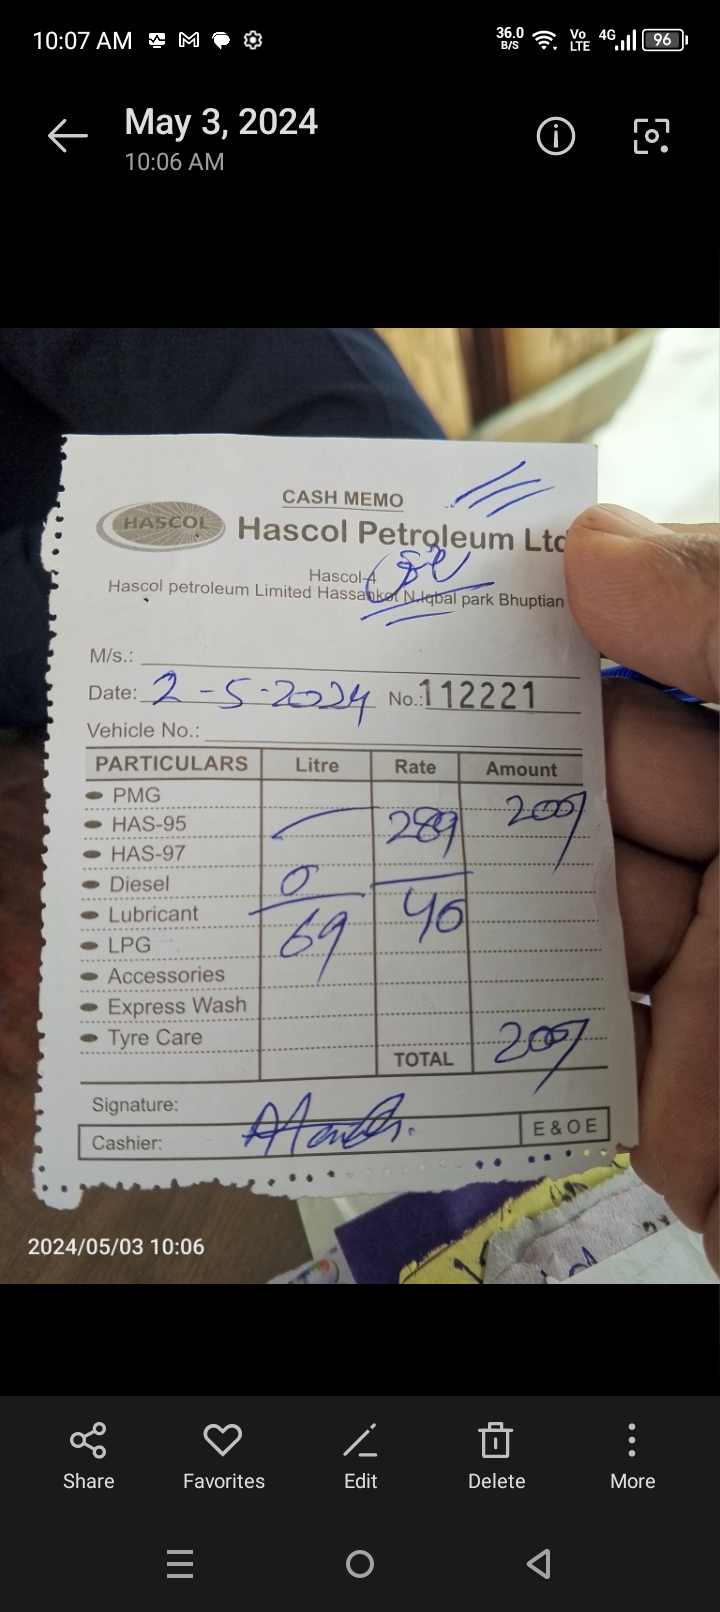 10:07 AM
36.0 B/S Vo LTE 4G 96
May 3, 2024
10:06 AM
CASH MEMO
HASCOL Hascol Petroleum Ltd
Hascol-4
Hascol petroleum Limited Hassankot N.Iqbal park Bhuptian
M/s.:
Date: 2-5-2024 No.: 112221
Vehicle No.:
PARTICULARS Litre Rate Amount
PMG
HAS-95 289
HAS-97
Diesel
Lubricant
LPG 69
Accessories
Express Wash
Tyre Care
TOTAL
Signature:
Cashier: E & O E
2024/05/03 10:06
Share Favorites Edit Delete More